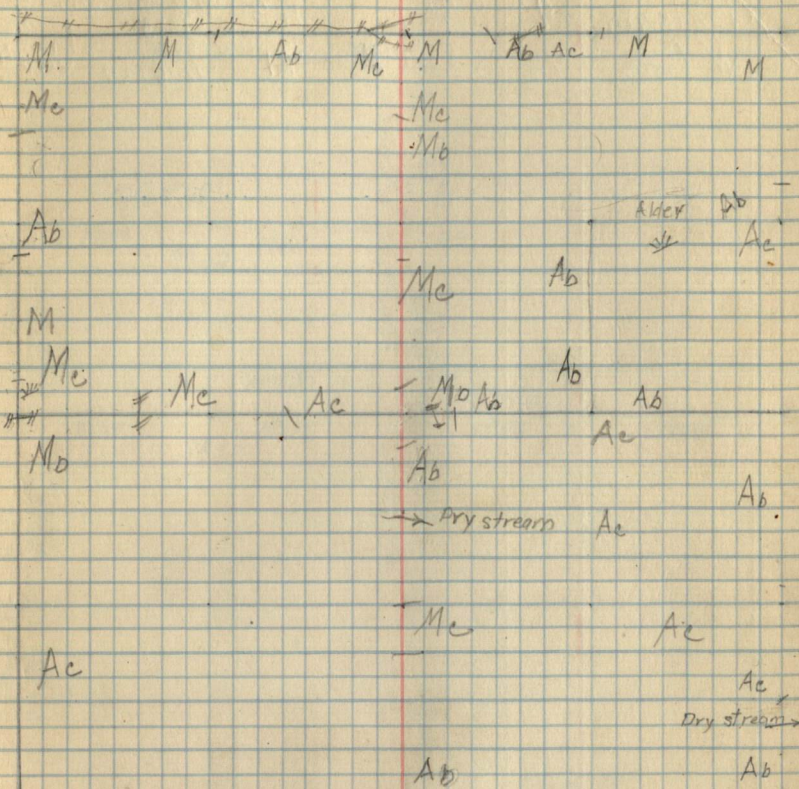 M M Ab Mc M Ab Ac M M
Mc Mc
Mb
Ab Alder Ab
Ac
Mc Ab
M
Mc Mc Ac Mb Ab Ab Ab
Ac
Mb Ab
Ab
Dry stream Ac
Mc Ac
Ac Ac
Dry stream
Ab Ab